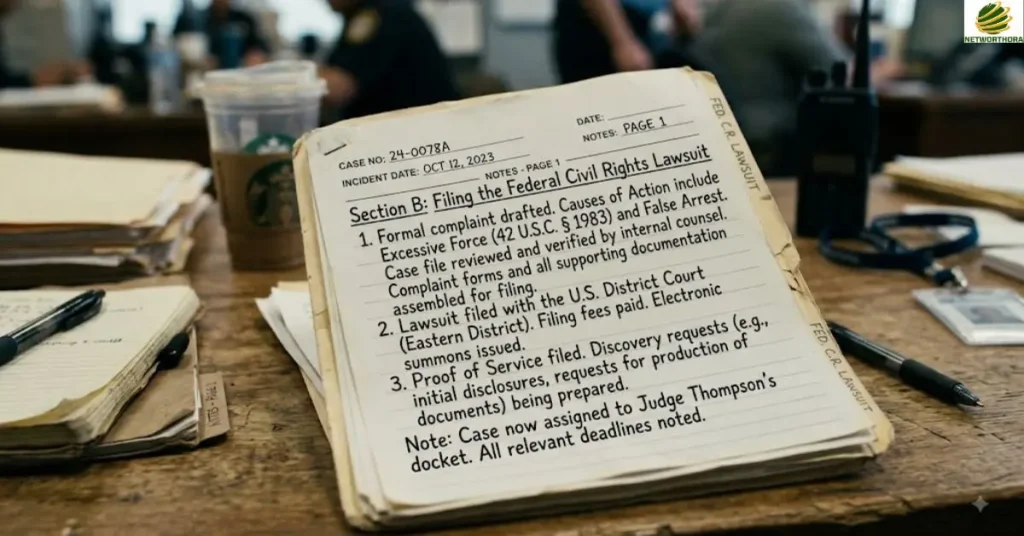 NETWORTHORA
DATE:
CASE NO: 24-0078A
NOTES: PAGE 1
INCIDENT DATE: OCT 12, 2023
NOTES - PAGE 1
Section B: Filing the Federal Civil Rights Lawsuit
1. Formal complaint drafted. Causes of Action include
Excessive Force (42 U.S.C. § 1983) and False Arrest.
Case file reviewed and verified by internal counsel.
Complaint forms and all supporting documentation
assembled for filing.
2. Lawsuit filed with the U.S. District Court
(Eastern District). Filing fees paid. Electronic
summons issued.
3. Proof of Service filed. Discovery requests (e.g.,
initial disclosures, requests for production of
documents) being prepared.
Note: Case now assigned to Judge Thompson's
docket. All relevant deadlines noted.
FED. C.R. LAWSUIT
FED. C.R. LAWSUIT